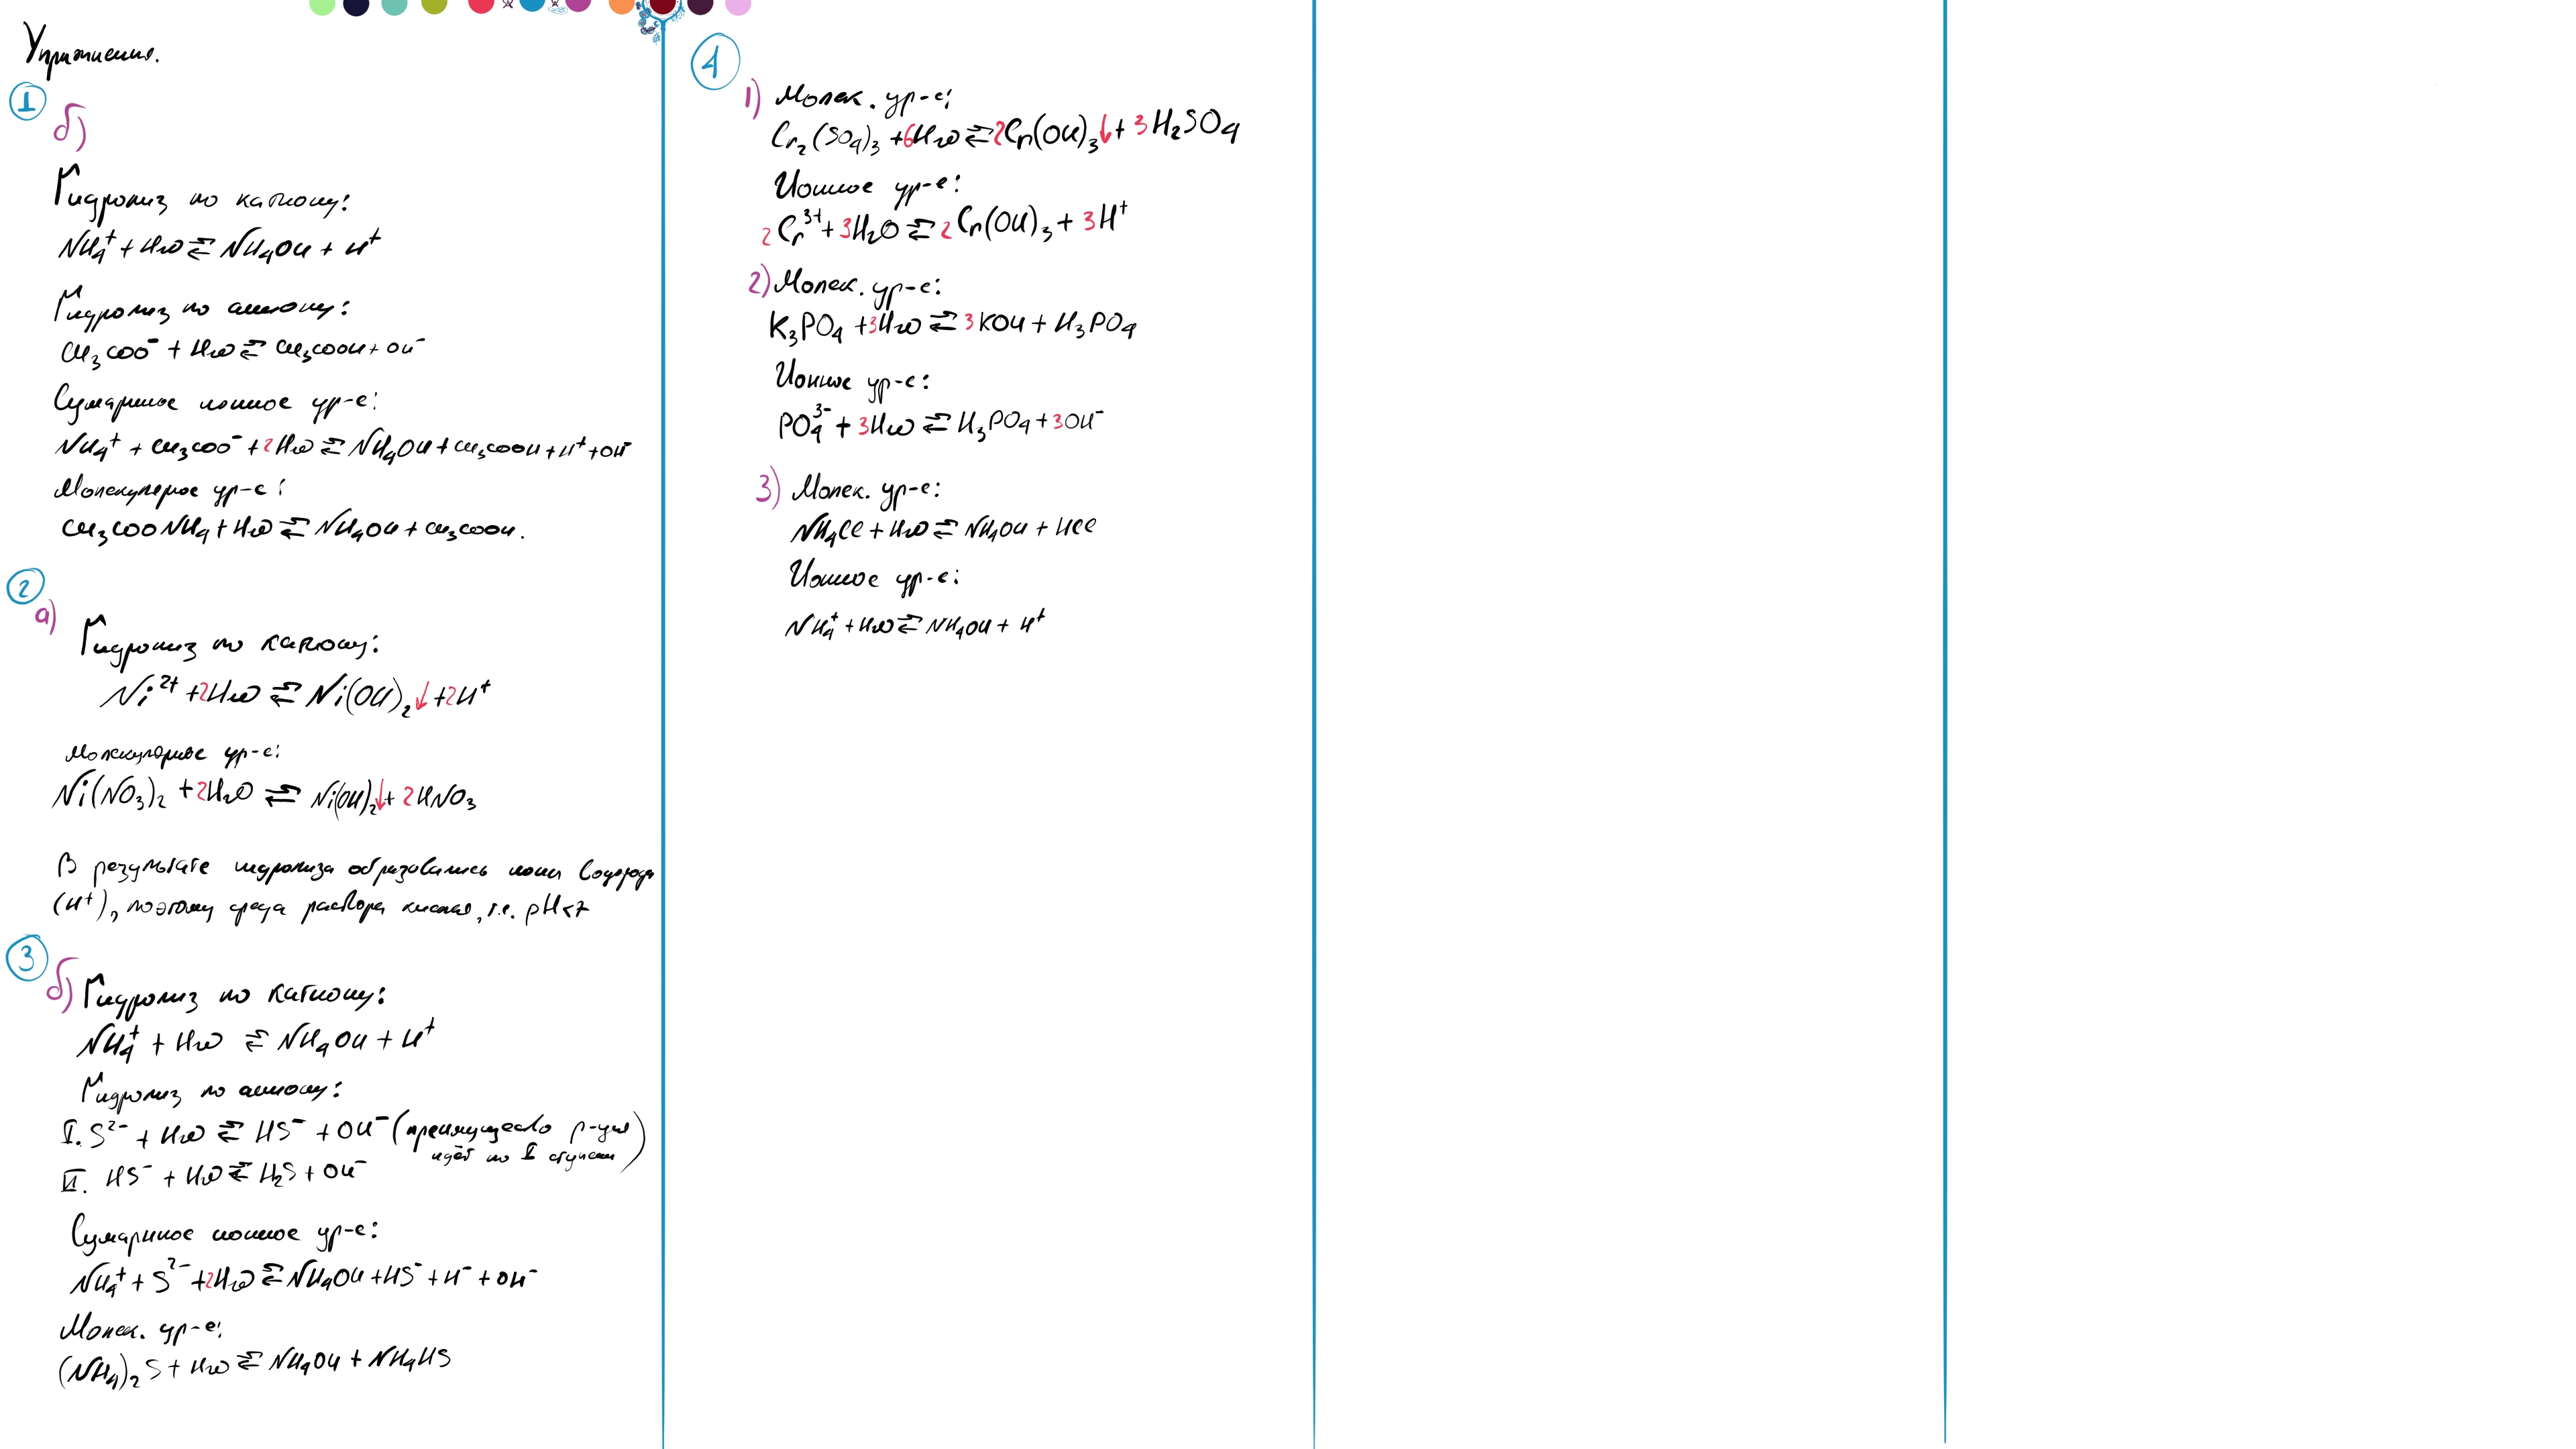 Упражнения.
1
б)
Гидролиз по катиону:
NH₄⁺ + H₂O ⇄ NH₄OH + H⁺
Гидролиз по аниону:
CH₃COO⁻ + H₂O ⇄ CH₃COOH + OH⁻
Сумарное ионное ур-е:
NH₄⁺ + CH₃COO⁻ + 2H₂O ⇄ NH₄OH + CH₃COOH + H⁺ + OH⁻
Молекулярное ур-е:
CH₃COONH₄ + H₂O ⇄ NH₄OH + CH₃COOH.
2
а)
Гидролиз по катиону:
Ni²⁺ + 2H₂O ⇄ Ni(OH)₂↓ + 2H⁺
Молекулярное ур-е:
Ni(NO₃)₂ + 2H₂O ⇄ Ni(OH)₂↓ + 2HNO₃
В результате гидролиза образовались ионы водорода
(H⁺), поэтому среда раствора кислая, т.е. pH<7
3
б) Гидролиз по катиону:
NH₄⁺ + H₂O ⇄ NH₄OH + H⁺
Гидролиз по аниону:
I. S²⁻ + H₂O ⇄ HS⁻ + OH⁻ (преимущество р-ция
идёт по I ступени)
II. HS⁻ + H₂O ⇄ H₂S + OH⁻
Сумарное ионное ур-е:
NH₄⁺ + S²⁻ + 2H₂O ⇄ NH₄OH + HS⁻ + H⁻ + OH⁻
Молек. ур-е:
(NH₄)₂S + H₂O ⇄ NH₄OH + NH₄HS
4
1) Молек. ур-е:
Cr₂(SO₄)₃ + 6H₂O ⇄ 2Cr(OH)₃↓ + 3H₂SO₄
Ионное ур-е:
2Cr³⁺ + 3H₂O ⇄ 2Cr(OH)₃ + 3H⁺
2) Молек. ур-е:
K₃PO₄ + 3H₂O ⇄ 3KOH + H₃PO₄
Ионное ур-е:
PO₄³⁻ + 3H₂O ⇄ H₃PO₄ + 3OH⁻
3) Молек. ур-е:
NH₄Cl + H₂O ⇄ NH₄OH + HCl
Ионное ур-е:
NH₄⁺ + H₂O ⇄ NH₄OH + H⁺